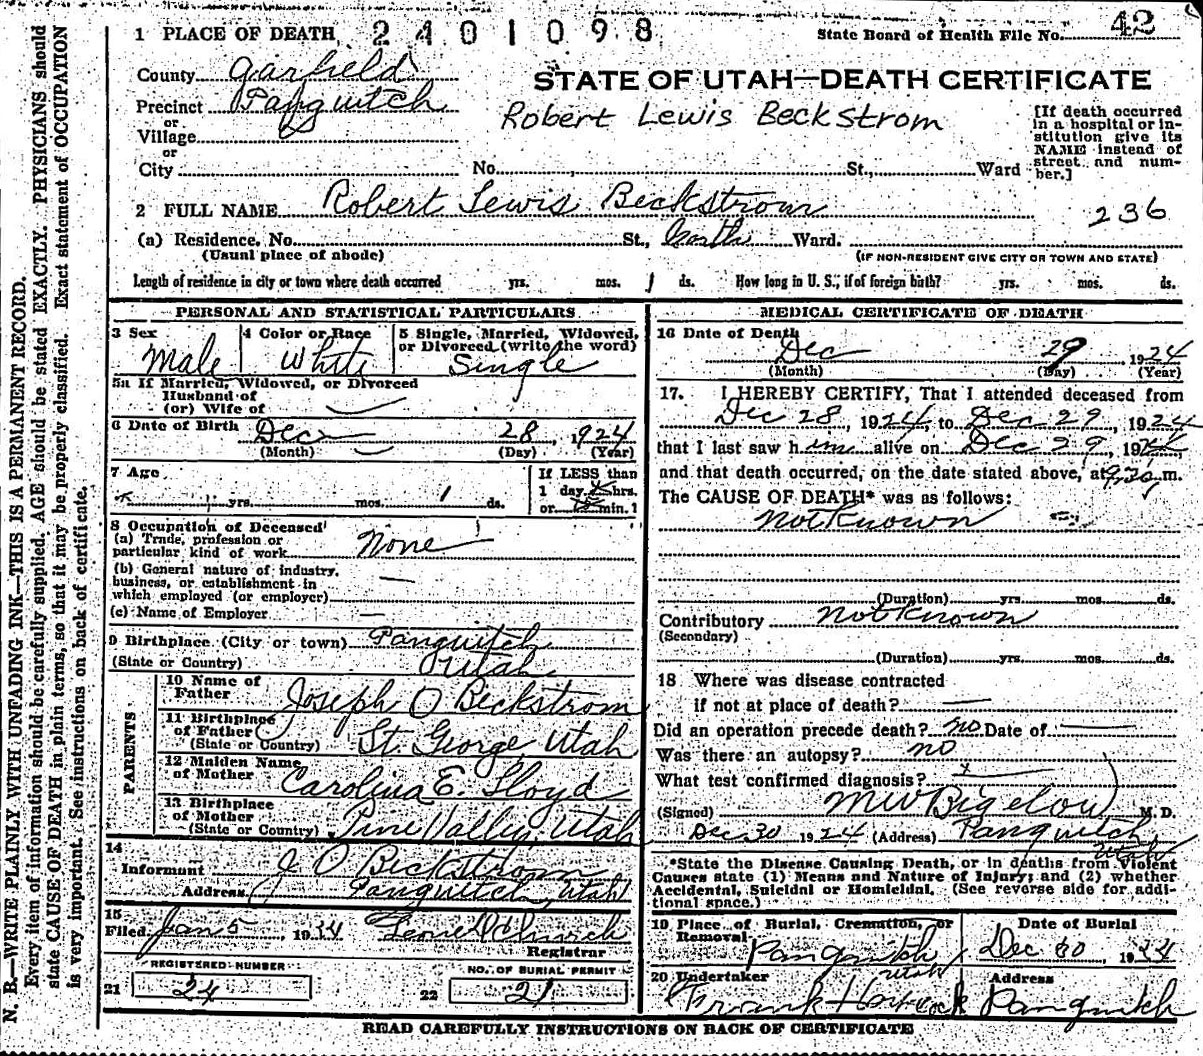 1 PLACE OF DEATH 2401098 State Board of Health File No. 42
County Garfield
STATE OF UTAH—DEATH CERTIFICATE
Precinct Panguitch
or
Village
Robert Lewis Beckstrom
[If death occurred in a hospital or institution give its NAME instead of street and number.]
or
City No. St., Ward
2 FULL NAME Robert Lewis Beckstrom
236
(a) Residence. No. St., Ward.
(Usual place of abode) (IF NON-RESIDENT GIVE CITY OR TOWN AND STATE)
Length of residence in city or town where death occurred yrs. mos. 1 ds. How long in U. S., if of foreign birth? yrs. mos. ds.
PERSONAL AND STATISTICAL PARTICULARS
3 Sex Male
4 Color or Race White
5 Single, Married, Widowed, or Divorced (write the word) Single
5a If Married, Widowed, or Divorced
Husband of
(or) Wife of
6 Date of Birth Dec 28, 1924
(Month) (Day) (Year)
7 Age
yrs. mos. 1 ds.
If LESS than
1 day hrs.
or min.?
8 Occupation of Deceased
(a) Trade, profession or
particular kind of work None
(b) General nature of industry,
business, or establishment in
which employed (or employer)
(c) Name of Employer —
9 Birthplace (City or town) Panguitch
(State or Country) Utah
PARENTS
10 Name of Father Joseph O Beckstrom
11 Birthplace of Father
(State or Country) St. George, Utah
12 Maiden Name of Mother Carolina E. Lloyd
13 Birthplace of Mother
(State or Country) Pine Valley, Utah
14
Informant J O Beckstrom
Address Panguitch, Utah
15
Filed Jan 5, 1924
Registrar
REGISTERED NUMBER
21 24
NO. OF BURIAL PERMIT
22 21
MEDICAL CERTIFICATE OF DEATH
16 Date of Death
Dec 29 1924
(Month) (Day) (Year)
17. I HEREBY CERTIFY, That I attended deceased from
Dec 28, 1924, to Dec 29, 1924
that I last saw him alive on Dec 29, 1924
and that death occurred, on the date stated above, at m.
The CAUSE OF DEATH* was as follows:
Not Known
(Duration) yrs. mos. ds.
Contributory Not Known
(Secondary)
(Duration) yrs. mos. ds.
18 Where was disease contracted
if not at place of death? —
Did an operation precede death? no Date of —
Was there an autopsy? no
What test confirmed diagnosis?
(Signed) M W Bigelow M. D.
Dec 30 1924 (Address) Panguitch
Utah
*State the Disease Causing Death, or in deaths from Violent
Causes state (1) Means and Nature of Injury; and (2) whether
Accidental, Suicidal or Homicidal. (See reverse side for additional space.)
19 Place of Burial, Cremation, or Removal
Panguitch
Utah
Date of Burial
Dec 30, 1924
20 Undertaker
Frank
Address
Panguitch
READ CAREFULLY INSTRUCTIONS ON BACK OF CERTIFICATE
N. B.—WRITE PLAINLY WITH UNFADING INK—THIS IS A PERMANENT RECORD.
Every item of information should be carefully supplied. AGE should be stated EXACTLY. PHYSICIANS should
state CAUSE OF DEATH in plain terms, so that it may be properly classified. Exact statement of OCCUPATION
is very important. See instructions on back of certificate.